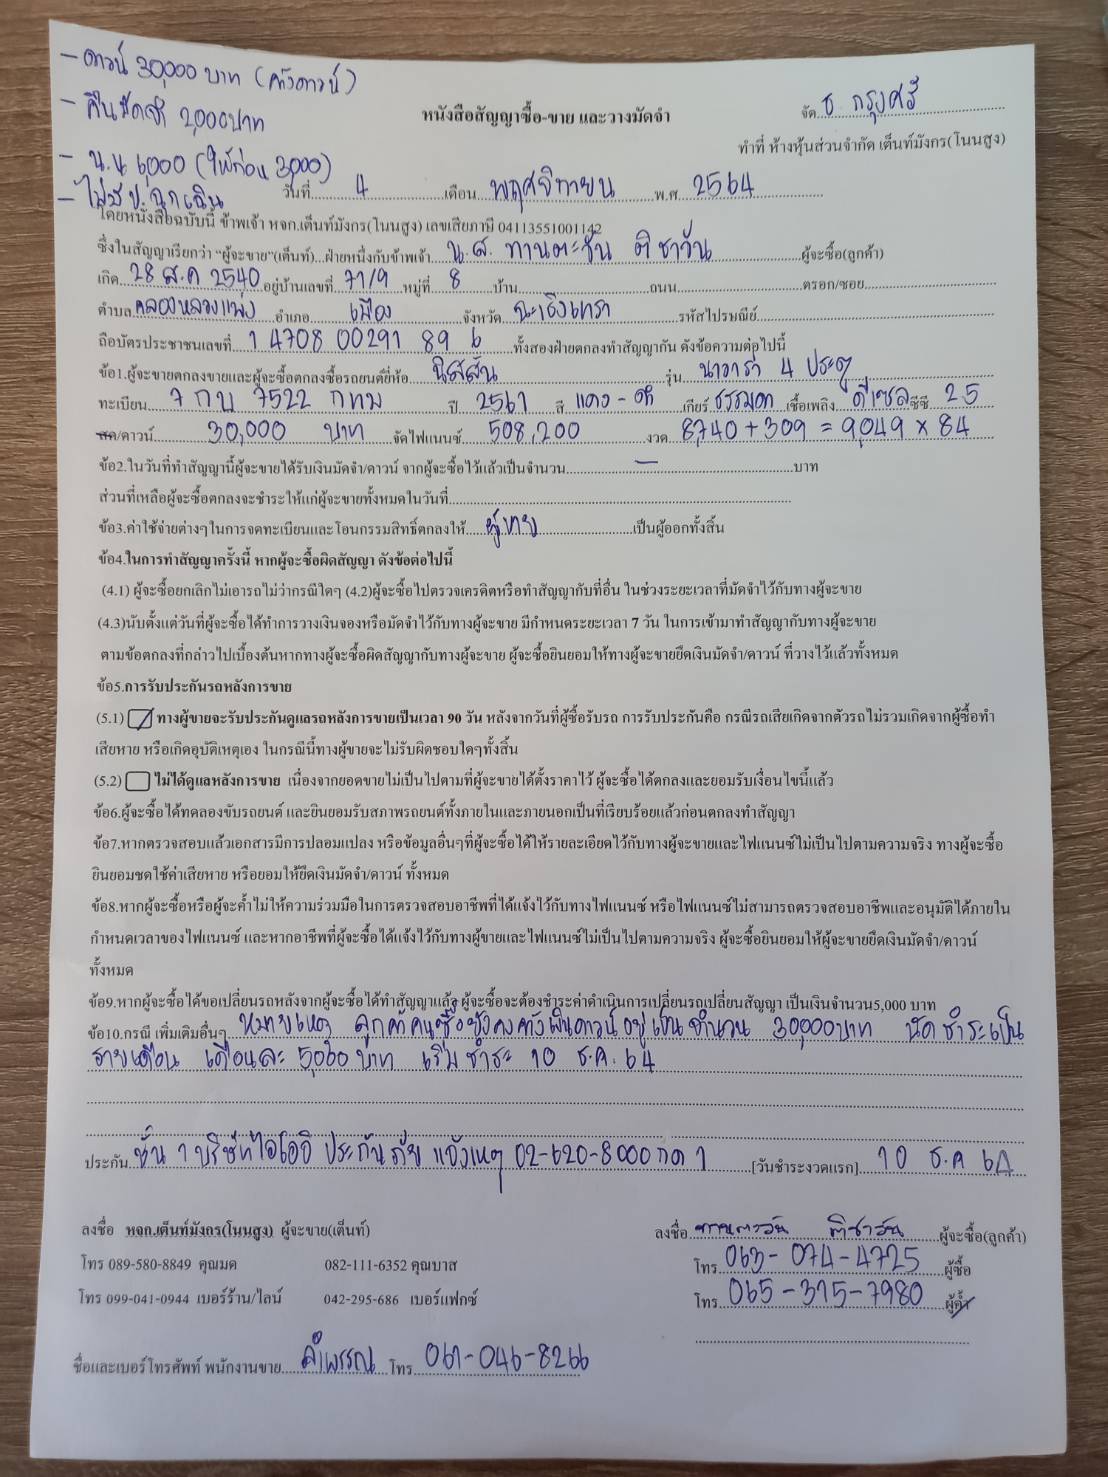 - ดาวน์ 30,000 บาท (ค้างดาวน์)
- คืนมัดจำ 2,000 บาท
- น.น 6,000 (ให้ก่อน 3,000)
- ไม่มี ป. ฉุกเฉิน
หนังสือสัญญาซื้อ-ขาย และวางมัดจำ
จัด ธ กรุงศรี
ทำที่ ห้างหุ้นส่วนจำกัด เต็นท์มังกร(โนนสูง)
วันที่ 4 เดือน พฤศจิกายน พ.ศ. 2564
โดยหนังสือฉบับนี้ ข้าพเจ้า หจก.เต็นท์มังกร(โนนสูง) เลขเสียภาษี 04113551001142
ซึ่งในสัญญาเรียกว่า "ผู้จะขาย"(เต็นท์)...ฝ่ายหนึ่งกับข้าพเจ้า น.ส. ทานตะวัน ติชาวัน ผู้จะซื้อ(ลูกค้า)
เกิด 28 ส.ค 2540 อยู่บ้านเลขที่ 71/9 หมู่ที่ 8 บ้าน ถนน ตรอก/ซอย
ตำบล คลองหลวงแพ่ง อำเภอ เมือง จังหวัด ฉะเชิงเทรา รหัสไปรษณีย์
ถือบัตรประชาชนเลขที่ 1 4708 00291 89 6 ทั้งสองฝ่ายตกลงทำสัญญากัน ดังข้อความต่อไปนี้
ข้อ1.ผู้จะขายตกลงขายและผู้จะซื้อตกลงซื้อรถยนต์ยี่ห้อ นิสสัน รุ่น นาวาร่า 4 ประตู
ทะเบียน 7 กบ 7522 กทม ปี 2561 สี แดง - ดำ เกียร์ ธรรมดา เชื้อเพลิง ดีเซล ซีซี 25
สด/ดาวน์ 30,000 บาท จัดไฟแนนซ์ 508,200 งวด 8,740 + 309 = 9,049 x 84
ข้อ2.ในวันที่ทำสัญญานี้ผู้จะขายได้รับเงินมัดจำ/ดาวน์ จากผู้จะซื้อไว้แล้วเป็นจำนวน - บาท
ส่วนที่เหลือผู้จะซื้อตกลงจะชำระให้แก่ผู้จะขายทั้งหมดในวันที่
ข้อ3.ค่าใช้จ่ายต่างๆในการจดทะเบียนและโอนกรรมสิทธิ์ตกลงให้ ผู้ขาย เป็นผู้ออกทั้งสิ้น
ข้อ4.ในการทำสัญญาครั้งนี้ หากผู้จะซื้อผิดสัญญา ดังข้อต่อไปนี้
(4.1) ผู้จะซื้อยกเลิกไม่เอารถไม่ว่ากรณีใดๆ (4.2)ผู้จะซื้อไปตรวจเครดิตหรือทำสัญญากับที่อื่น ในช่วงระยะเวลาที่มัดจำไว้กับทางผู้จะขาย
(4.3)นับตั้งแต่วันที่ผู้จะซื้อได้ทำการวางเงินจองหรือมัดจำไว้กับทางผู้จะขาย มีกำหนดระยะเวลา 7 วัน ในการเข้ามาทำสัญญากับทางผู้จะขาย
ตามข้อตกลงที่กล่าวไปเบื้องต้นหากทางผู้จะซื้อผิดสัญญากับทางผู้จะขาย ผู้จะซื้อยินยอมให้ทางผู้จะขายยึดเงินมัดจำ/ดาวน์ ที่วางไว้แล้วทั้งหมด
ข้อ5.การรับประกันรถหลังการขาย
(5.1) ทางผู้ขายจะรับประกันดูแลรถหลังการขายเป็นเวลา 90 วัน หลังจากวันที่ผู้ซื้อรับรถ การรับประกันคือ กรณีรถเสียเกิดจากตัวรถไม่รวมเกิดจากผู้ซื้อทำ
เสียหาย หรือเกิดอุบัติเหตุเอง ในกรณีนี้ทางผู้ขายจะไม่รับผิดชอบใดๆทั้งสิ้น
(5.2) ไม่ได้ดูแลหลังการขาย เนื่องจากยอดขายไม่เป็นไปตามที่ผู้จะขายได้ตั้งราคาไว้ ผู้จะซื้อได้ตกลงและยอมรับเงื่อนไขนี้แล้ว
ข้อ6.ผู้จะซื้อได้ทดลองขับรถยนต์ และยินยอมรับสภาพรถยนต์ทั้งภายในและภายนอกเป็นที่เรียบร้อยแล้วก่อนตกลงทำสัญญา
ข้อ7.หากตรวจสอบแล้วเอกสารมีการปลอมแปลง หรือข้อมูลอื่นๆที่ผู้จะซื้อได้ให้รายละเอียดไว้กับทางผู้จะขายและไฟแนนซ์ไม่เป็นไปตามความจริง ทางผู้จะซื้อ
ยินยอมชดใช้ค่าเสียหาย หรือยอมให้ยึดเงินมัดจำ/ดาวน์ ทั้งหมด
ข้อ8.หากผู้จะซื้อหรือผู้จะค้ำไม่ให้ความร่วมมือในการตรวจสอบอาชีพที่ได้แจ้งไว้กับทางไฟแนนซ์ หรือไฟแนนซ์ไม่สามารถตรวจสอบอาชีพและอนุมัติได้ภายใน
กำหนดเวลาของไฟแนนซ์ และหากอาชีพที่ผู้จะซื้อได้แจ้งไว้กับทางผู้ขายและไฟแนนซ์ไม่เป็นไปตามความจริง ผู้จะซื้อยินยอมให้ผู้จะขายยึดเงินมัดจำ/ดาวน์
ทั้งหมด
ข้อ9.หากผู้จะซื้อได้ขอเปลี่ยนรถหลังจากผู้จะซื้อได้ทำสัญญาแล้ว ผู้จะซื้อจะต้องชำระค่าดำเนินการเปลี่ยนรถเปลี่ยนสัญญา เป็นเงินจำนวน5,000 บาท
ข้อ10.กรณี เพิ่มเติมอื่นๆ หมายเหตุ ลูกค้าคนซื้อยังคงค้างเงินดาวน์อยู่เป็นจำนวน 30,000บาท นัดชำระเป็น
รายเดือน เดือนละ 5,000 บาท เริ่มชำระ 10 ธ.ค. 64
ประกัน ชั้น 1 บริษัทไอโออิ ประกันภัย แจ้งเหตุ 02-620-8000 กด 1 [วันชำระงวดแรก] 10 ธ.ค 64
ลงชื่อ หจก.เต็นท์มังกร(โนนสูง) ผู้จะขาย(เต็นท์)
ลงชื่อ ทานตะวัน ติชาวัน ผู้จะซื้อ(ลูกค้า)
โทร 089-580-8849 คุณมด 082-111-6352 คุณบาส
โทร 063-074-4725 ผู้ซื้อ
โทร 099-041-0944 เบอร์ร้าน/ไลน์ 042-295-686 เบอร์แฟกซ์
โทร 065-315-7980 ผู้ค้ำ
ชื่อและเบอร์โทรศัพท์ พนักงานขาย ลำพรรณ โทร 061-046-8266